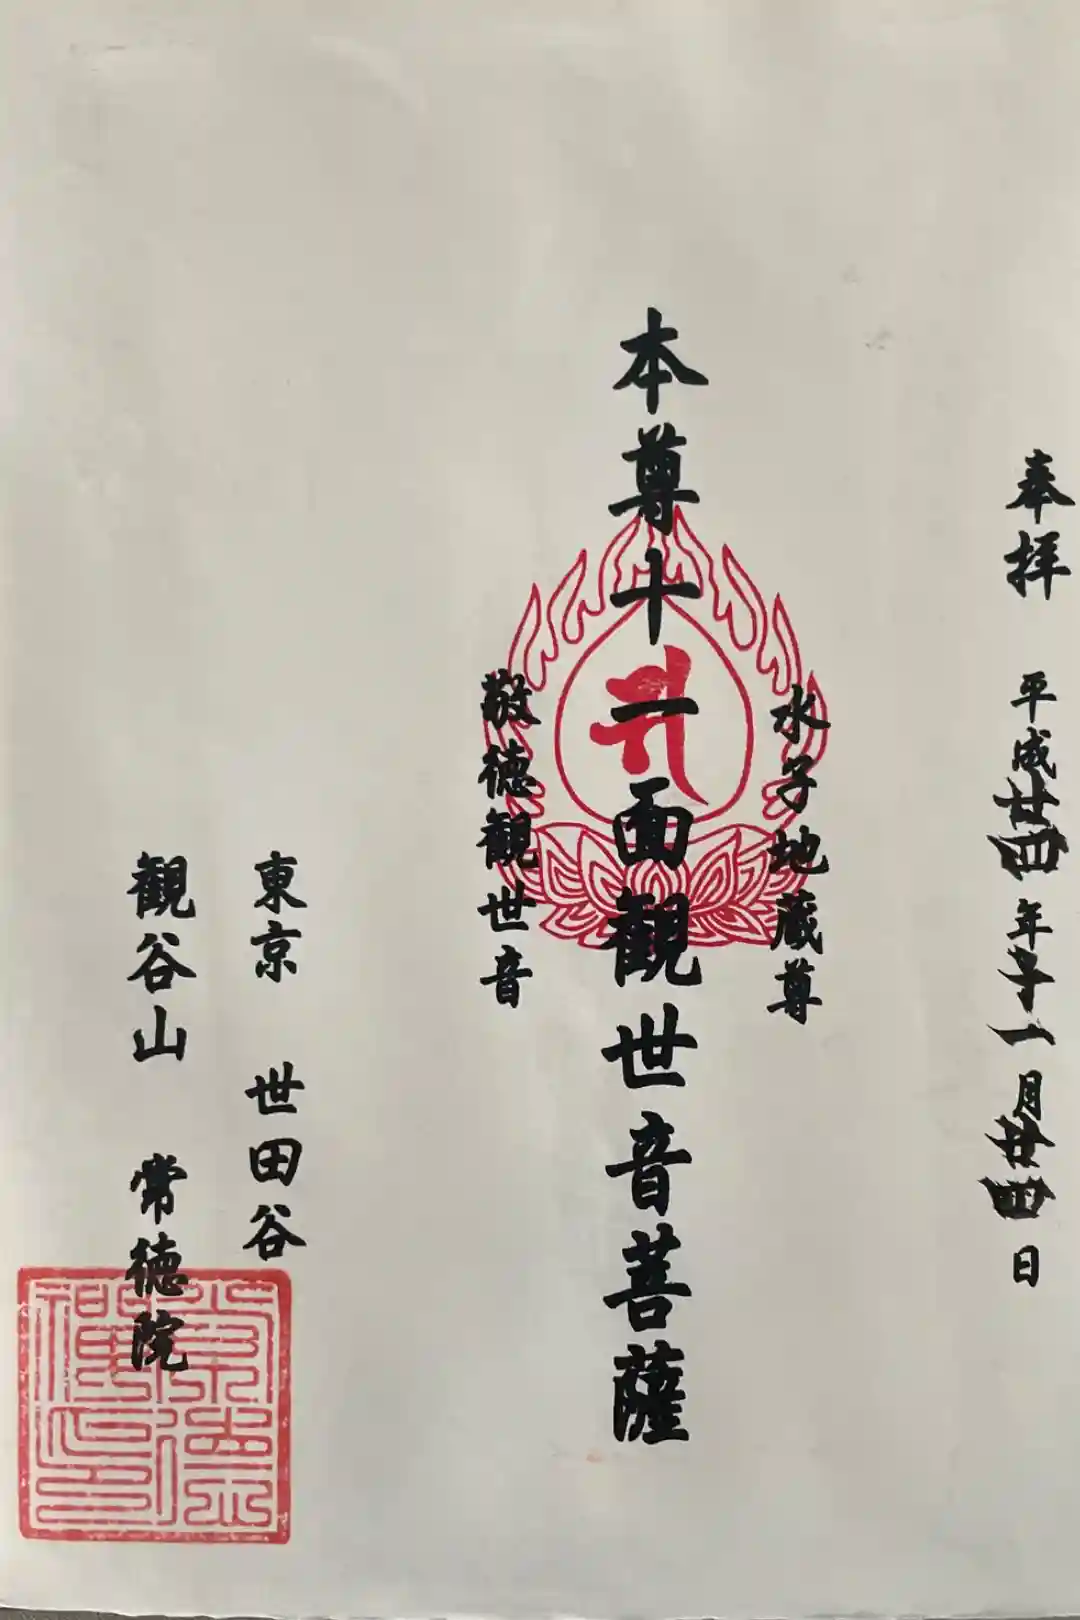 奉拝 平成廿四年十一月廿四日
水子地蔵尊
本尊十一面観世音菩薩
敬徳観世音
東京 世田谷
観谷山 常徳院